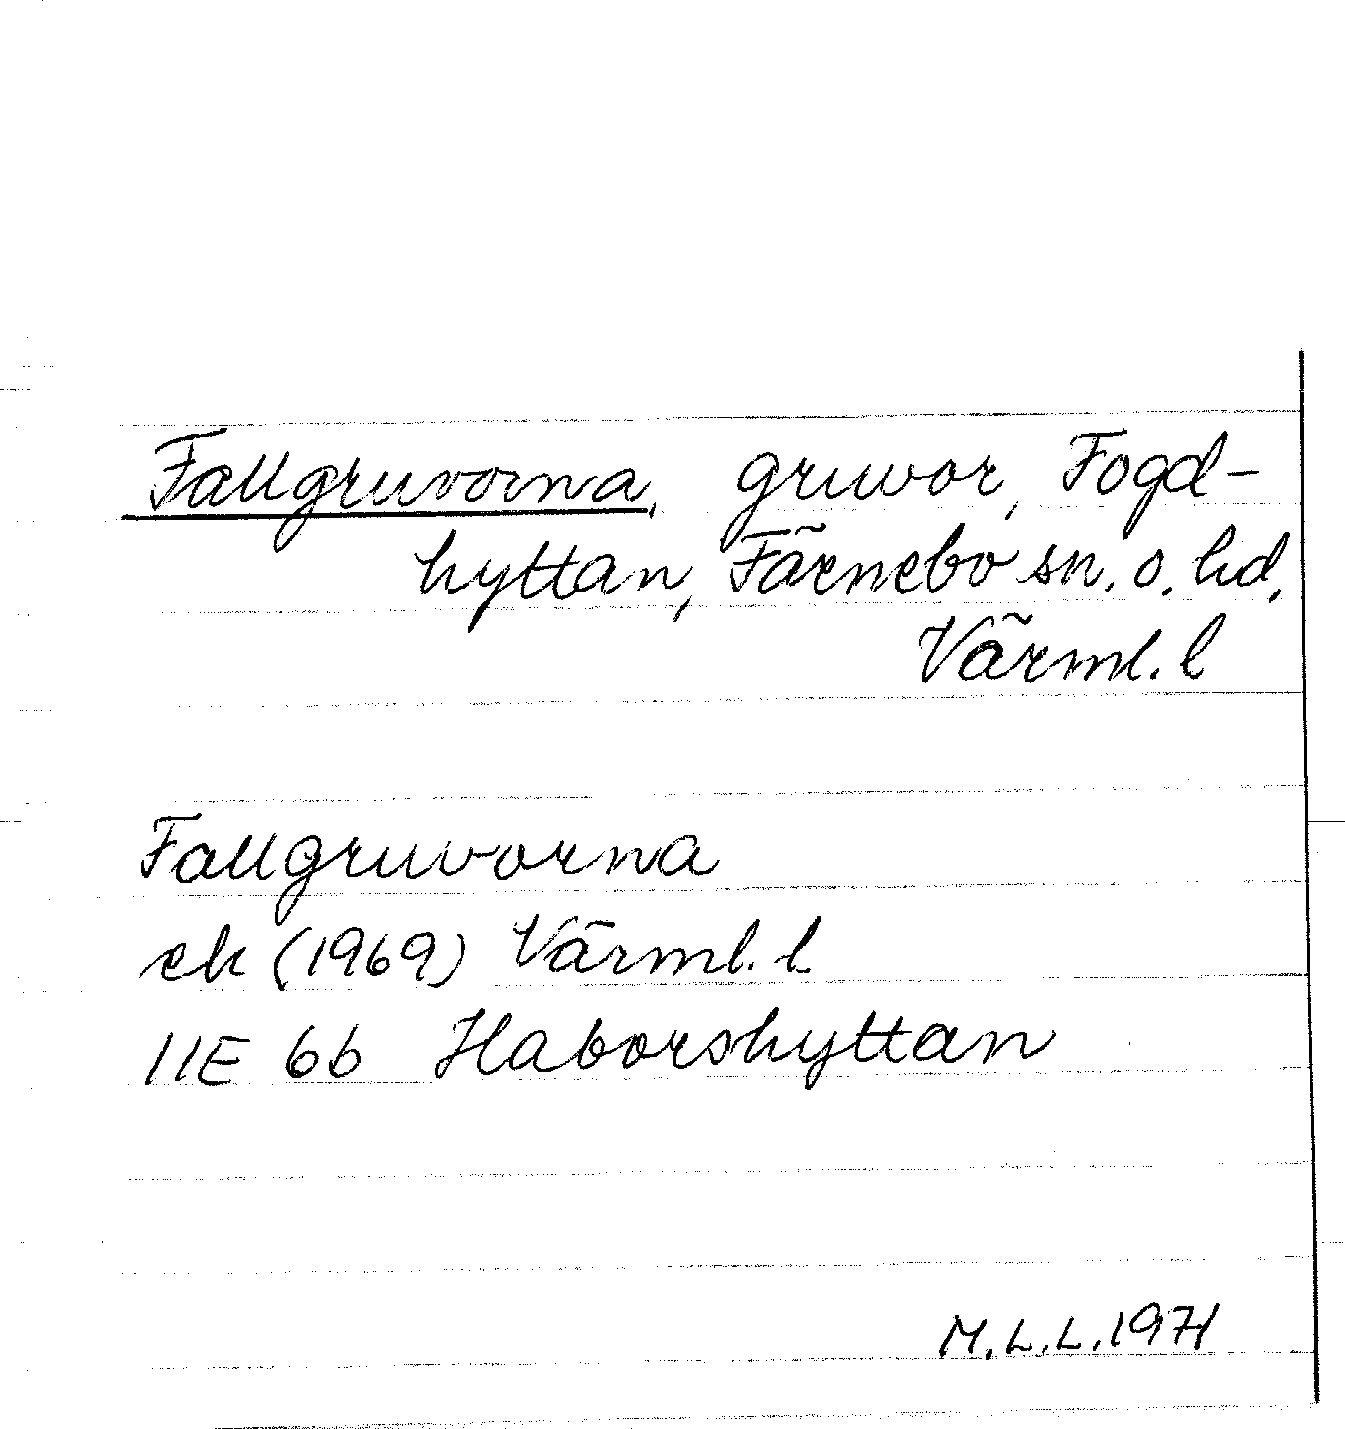 Fallgruvorna, gruvor, Fogd-
hyttan, Färnebo sn. o. hd,
Värml. l
Fallgruvorna
ek (1969) Värml. l.
11E 6b Haborshyttan
M.L.L. 1971